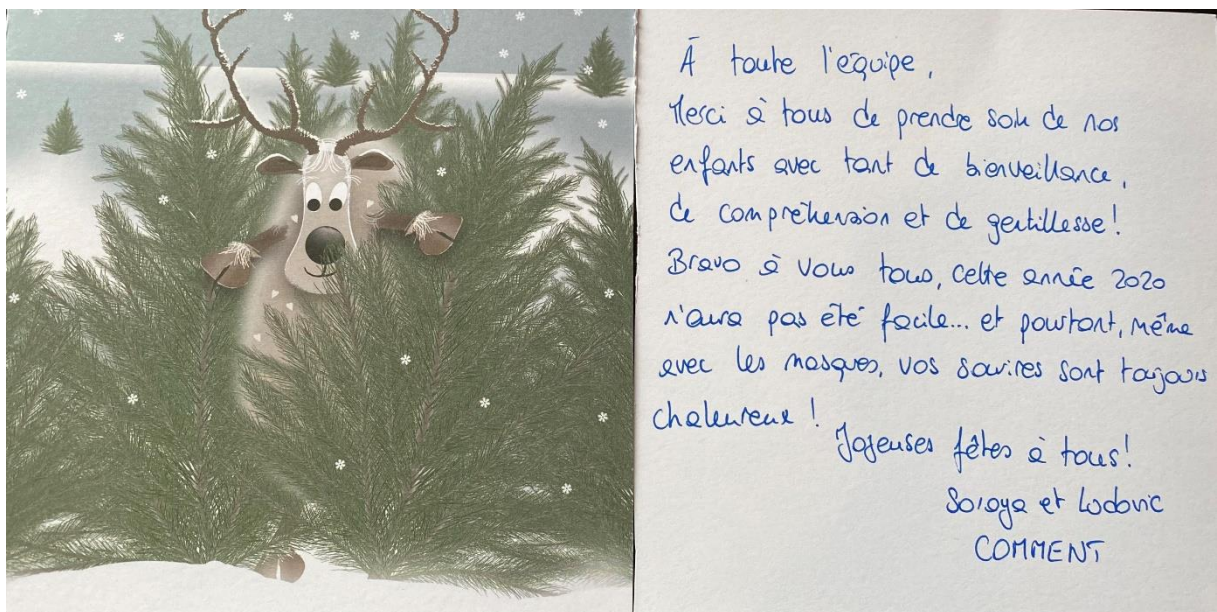 À toute l'équipe,
Merci à tous de prendre soin de nos
enfants avec tant de bienveillance,
de compréhension et de gentillesse!
Bravo à vous tous, cette année 2020
n'aura pas été facile... et pourtant, même
avec les masques, vos sourires sont toujours
chaleureux !
Joyeuses fêtes à tous!
Soraya et Ludovic
COMMENT